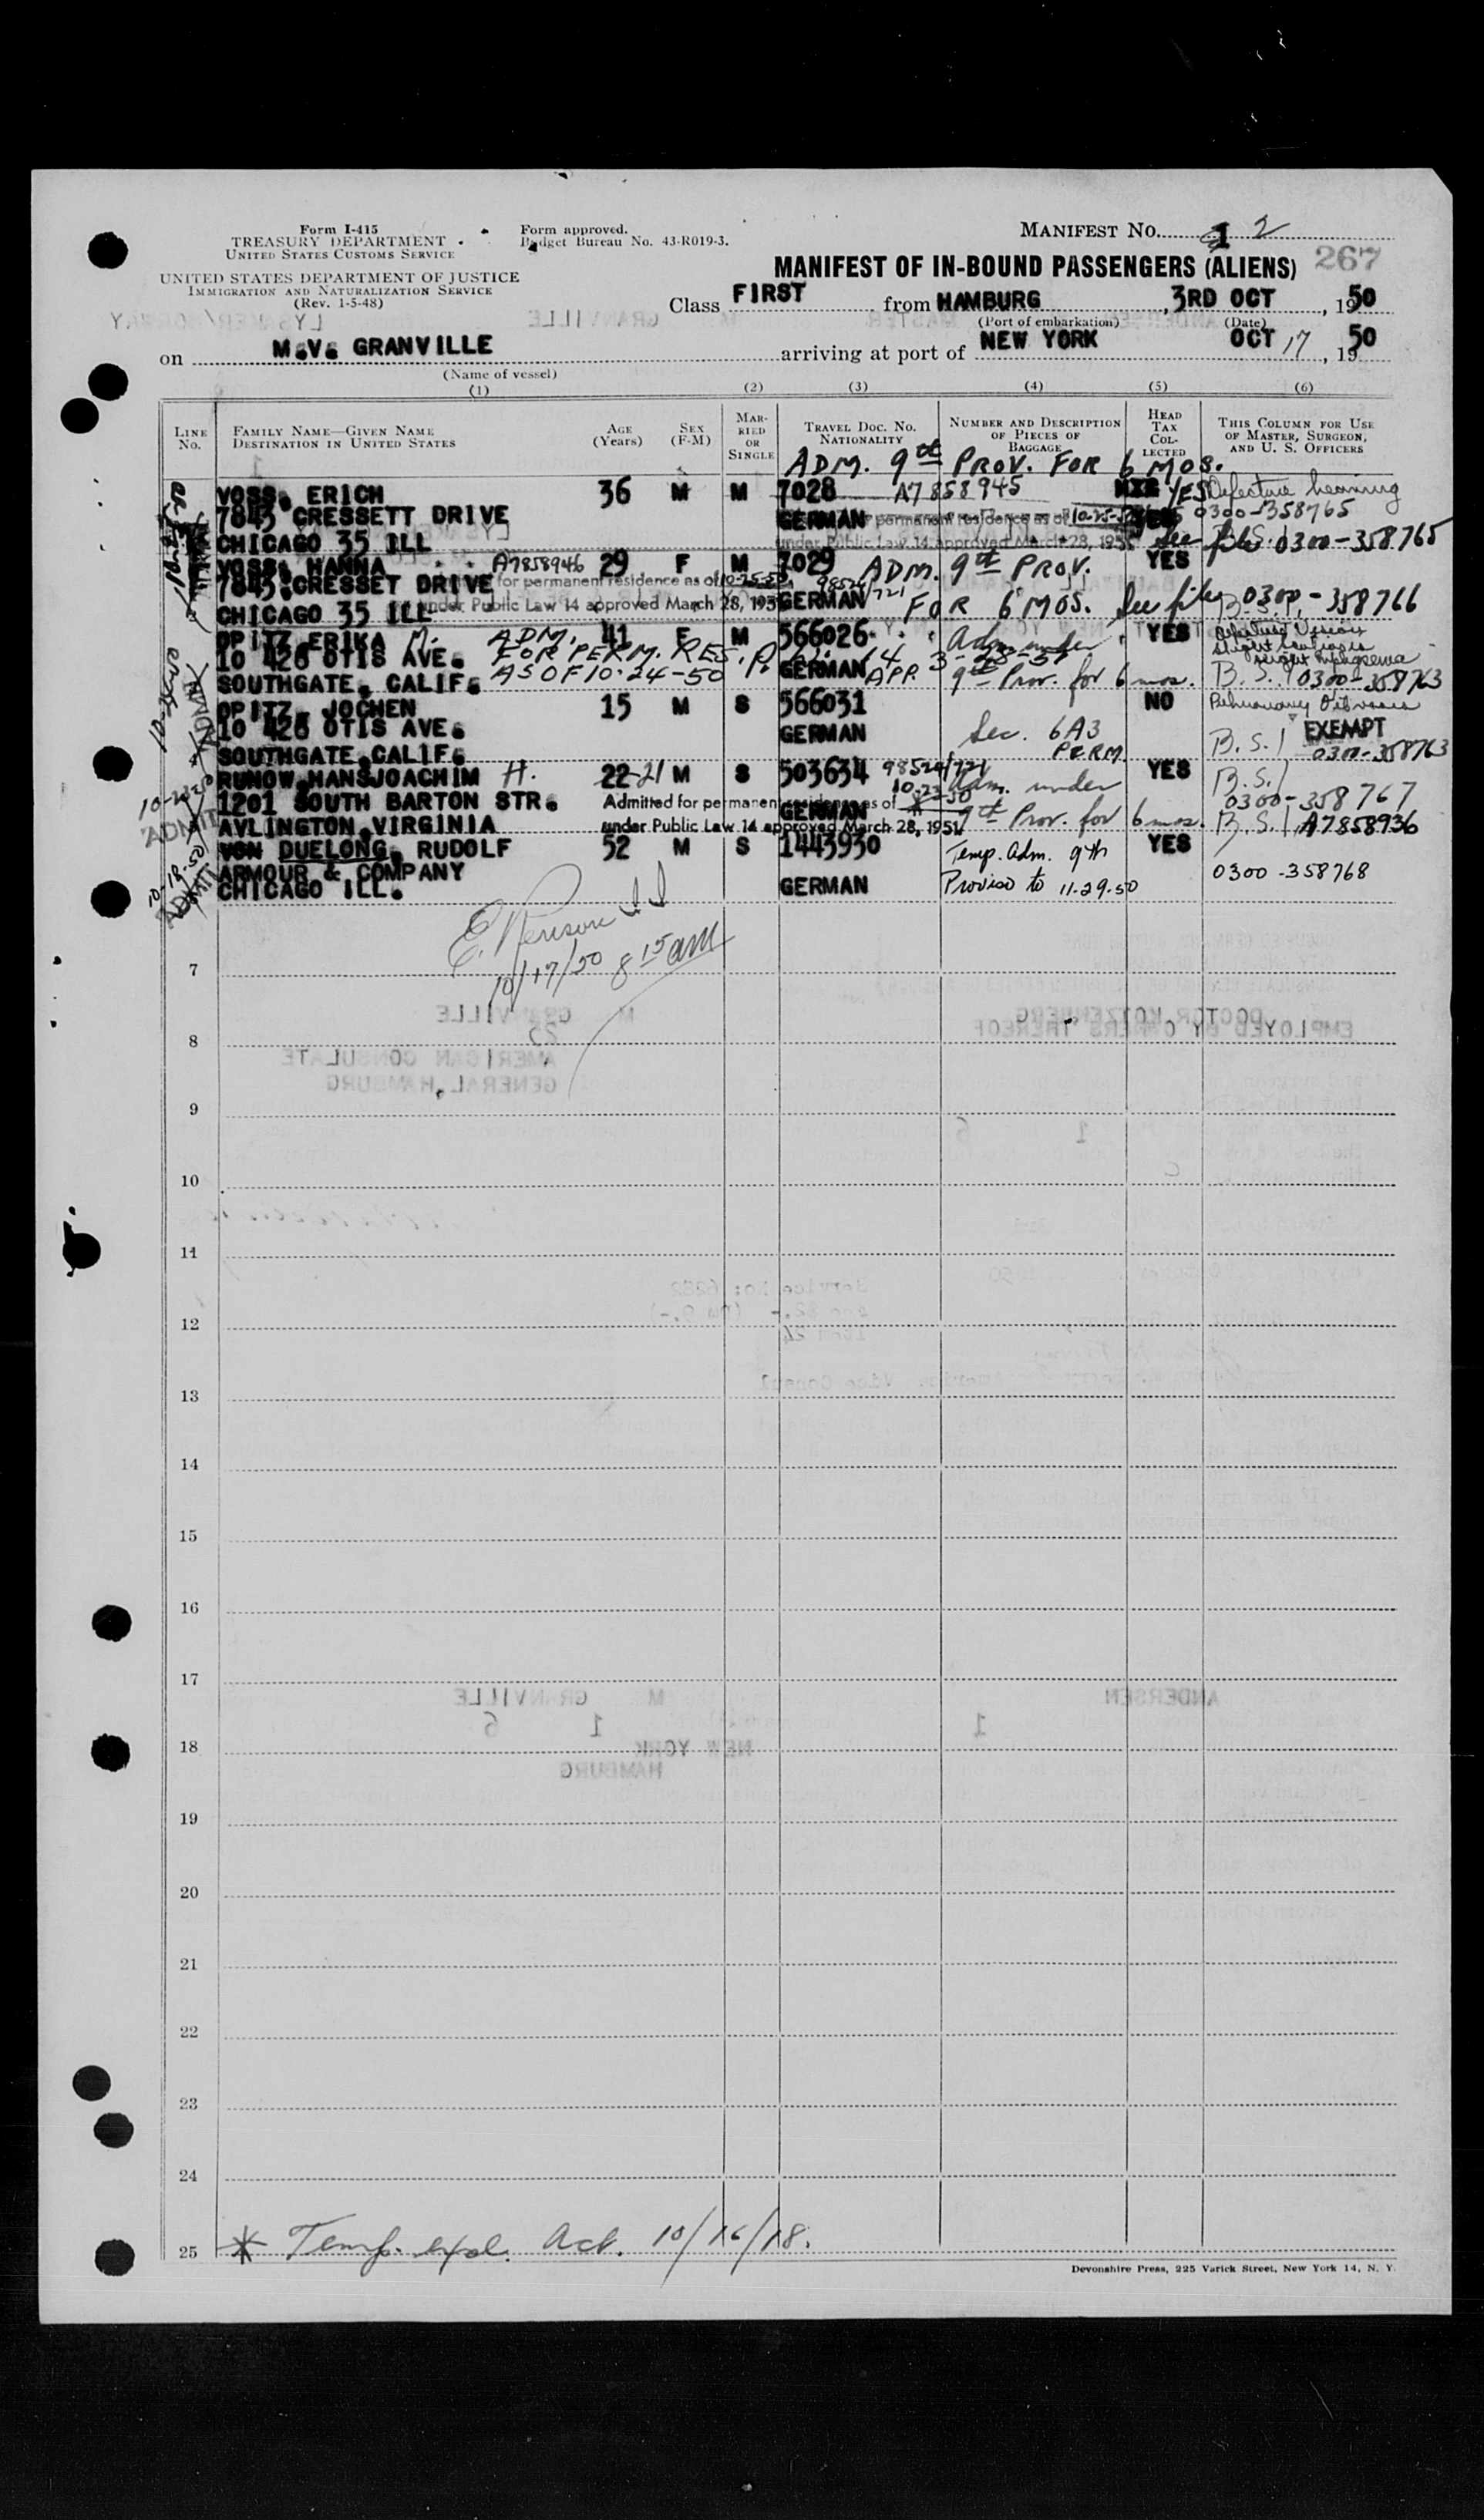 Form I-415
TREASURY DEPARTMENT
UNITED STATES CUSTOMS SERVICE
UNITED STATES DEPARTMENT OF JUSTICE
IMMIGRATION AND NATURALIZATION SERVICE
(Rev. 1-5-48)
Form approved.
Budget Bureau No. 43-R019-3.
MANIFEST NO. 2
267
MANIFEST OF IN-BOUND PASSENGERS (ALIENS)
Class FIRST from HAMBURG, 3RD OCT, 1950
(Port of embarkation) (Date)
on M.V. GRANVILLE arriving at port of NEW YORK OCT 17, 1950
(Name of vessel)
(1) (2) (3) (4) (5) (6)
LINE NO.
FAMILY NAME—GIVEN NAME
DESTINATION IN UNITED STATES
AGE (Years)
SEX (F-M)
MARRIED OR SINGLE
TRAVEL DOC. NO.
NATIONALITY
NUMBER AND DESCRIPTION OF PIECES OF BAGGAGE
HEAD TAX COLLECTED
THIS COLUMN FOR USE OF MASTER, SURGEON, AND U. S. OFFICERS
ADM. 9th PROV. FOR 6 MOS.
VOSS, ERICH 36 M M 7028 A7858945 YES Defective hearing
7843 CRESSETT DRIVE GERMAN permanent residence as of 10-25-50 0300-358765
CHICAGO 35 ILL under Public Law 14 approved March 28, 1951 See file 0300-358765
VOSS, HANNA A7858946 29 F M 7029 ADM. 9th PROV. YES
7843 CRESSET DRIVE for permanent residence as of 10-25-50
CHICAGO 35 ILL under Public Law 14 approved March 28, 1951 GERMAN FOR 6 MOS. See file 0300-358766
OPITZ, ERIKA M. ADM. 41 F M 566026 Adm. under YES Defective Vision
10 426 OTIS AVE. FOR PERM. RES. P.L. 14 3-28-51
SOUTHGATE, CALIF. AS OF 10-24-50 GERMAN APP. 9th Prov. for 6 mos. B.S.I 0300-358763
OPITZ, JOCHEN 15 M S 566031 NO
10 426 OTIS AVE. GERMAN Sec. 6A3 EXEMPT
SOUTHGATE, CALIF. PERM. B.S.I 0300-358763
RUNOW, HANSJOACHIM H. 22 21 M S 503634 98520/721 YES B.S.I
1201 SOUTH BARTON STR. Admitted for permanent residence as of 10-23-50 GERMAN Adm. under 0300-358767
AVLINGTON, VIRGINIA under Public Law 14 approved March 28, 1951 9th Prov. for 6 mos. B.S.I A7858936
VON DUELONG, RUDOLF 52 M S 1443930 Temp. Adm. 9th YES
ARMOUR & COMPANY
CHICAGO ILL. GERMAN Proviso to 11.29.50 0300-358768
10/17/50 8 15 am
7
8
9
10
11
12
13
14
15
16
17
18
19
20
21
22
23
24
25 * Temp. expl. Act. 10/16/18.
Devonshire Press, 225 Varick Street, New York 14, N. Y.